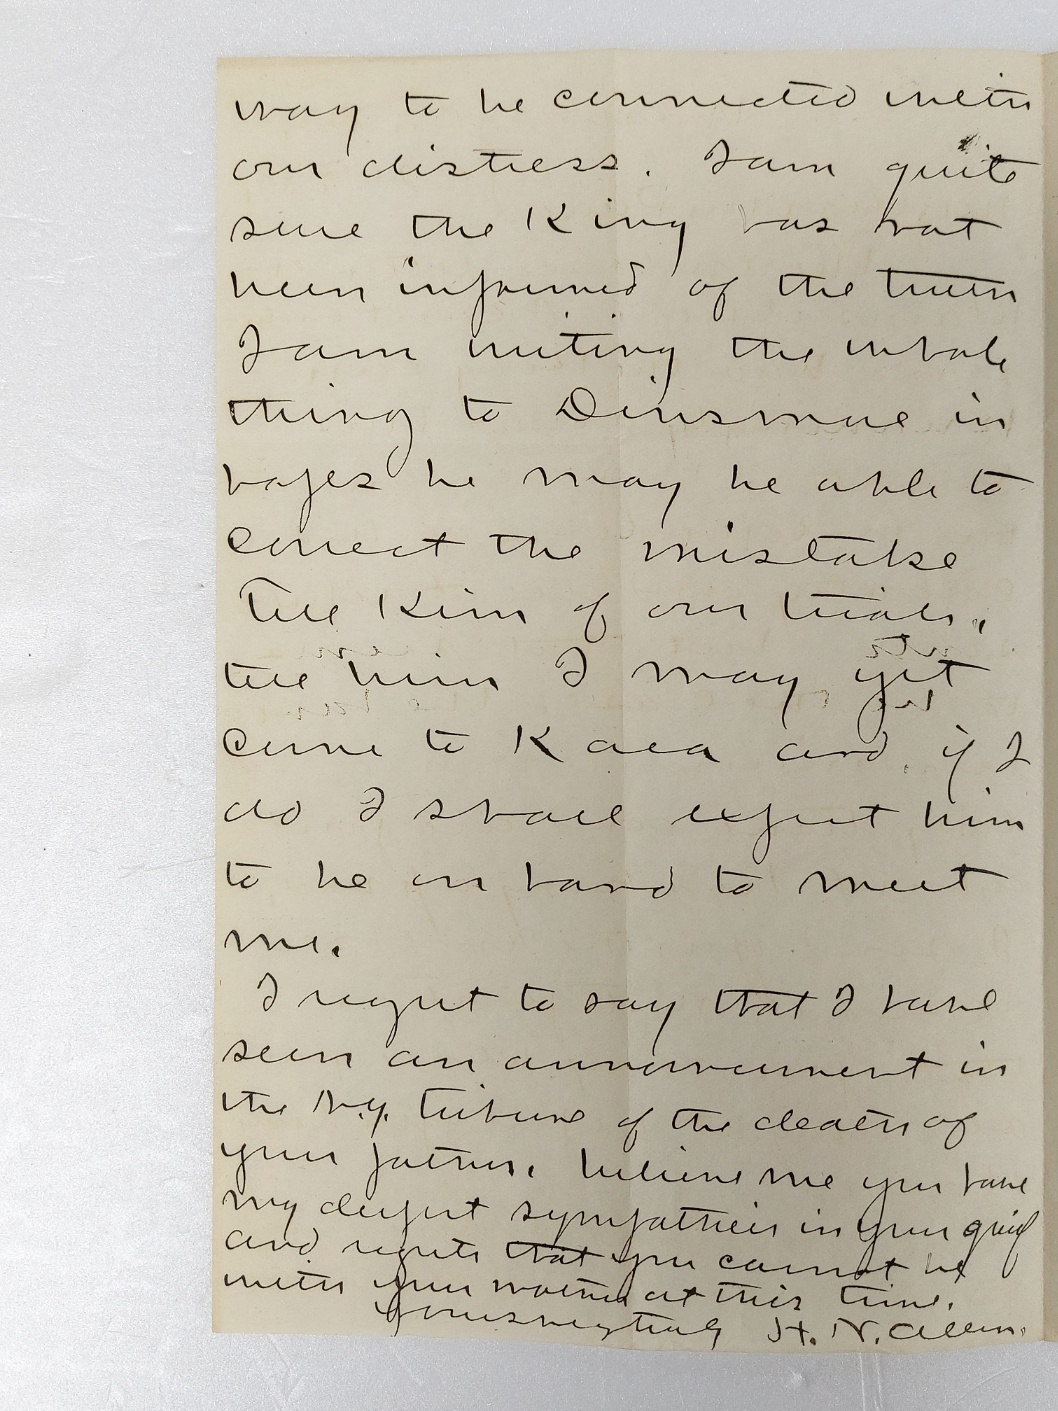 way to be connected with
our distress. I am quite
sure the King has not
been informed of the truth
I am writing the whole
thing to Dinsmore in
hopes he may be able to
correct the mistake
Tell Kim of our trials,
tell him I may yet
come to Korea and, if I
do I shall expect him
to be on hand to meet
me.
I regret to say that I have
seen an announcement in
the N.Y. Tribune of the death of
your father. believe me you have
my deepest sympathies in your grief
and regrets that you cannot be
with your mother at this time.
Yours respectfully H. N. Allen.